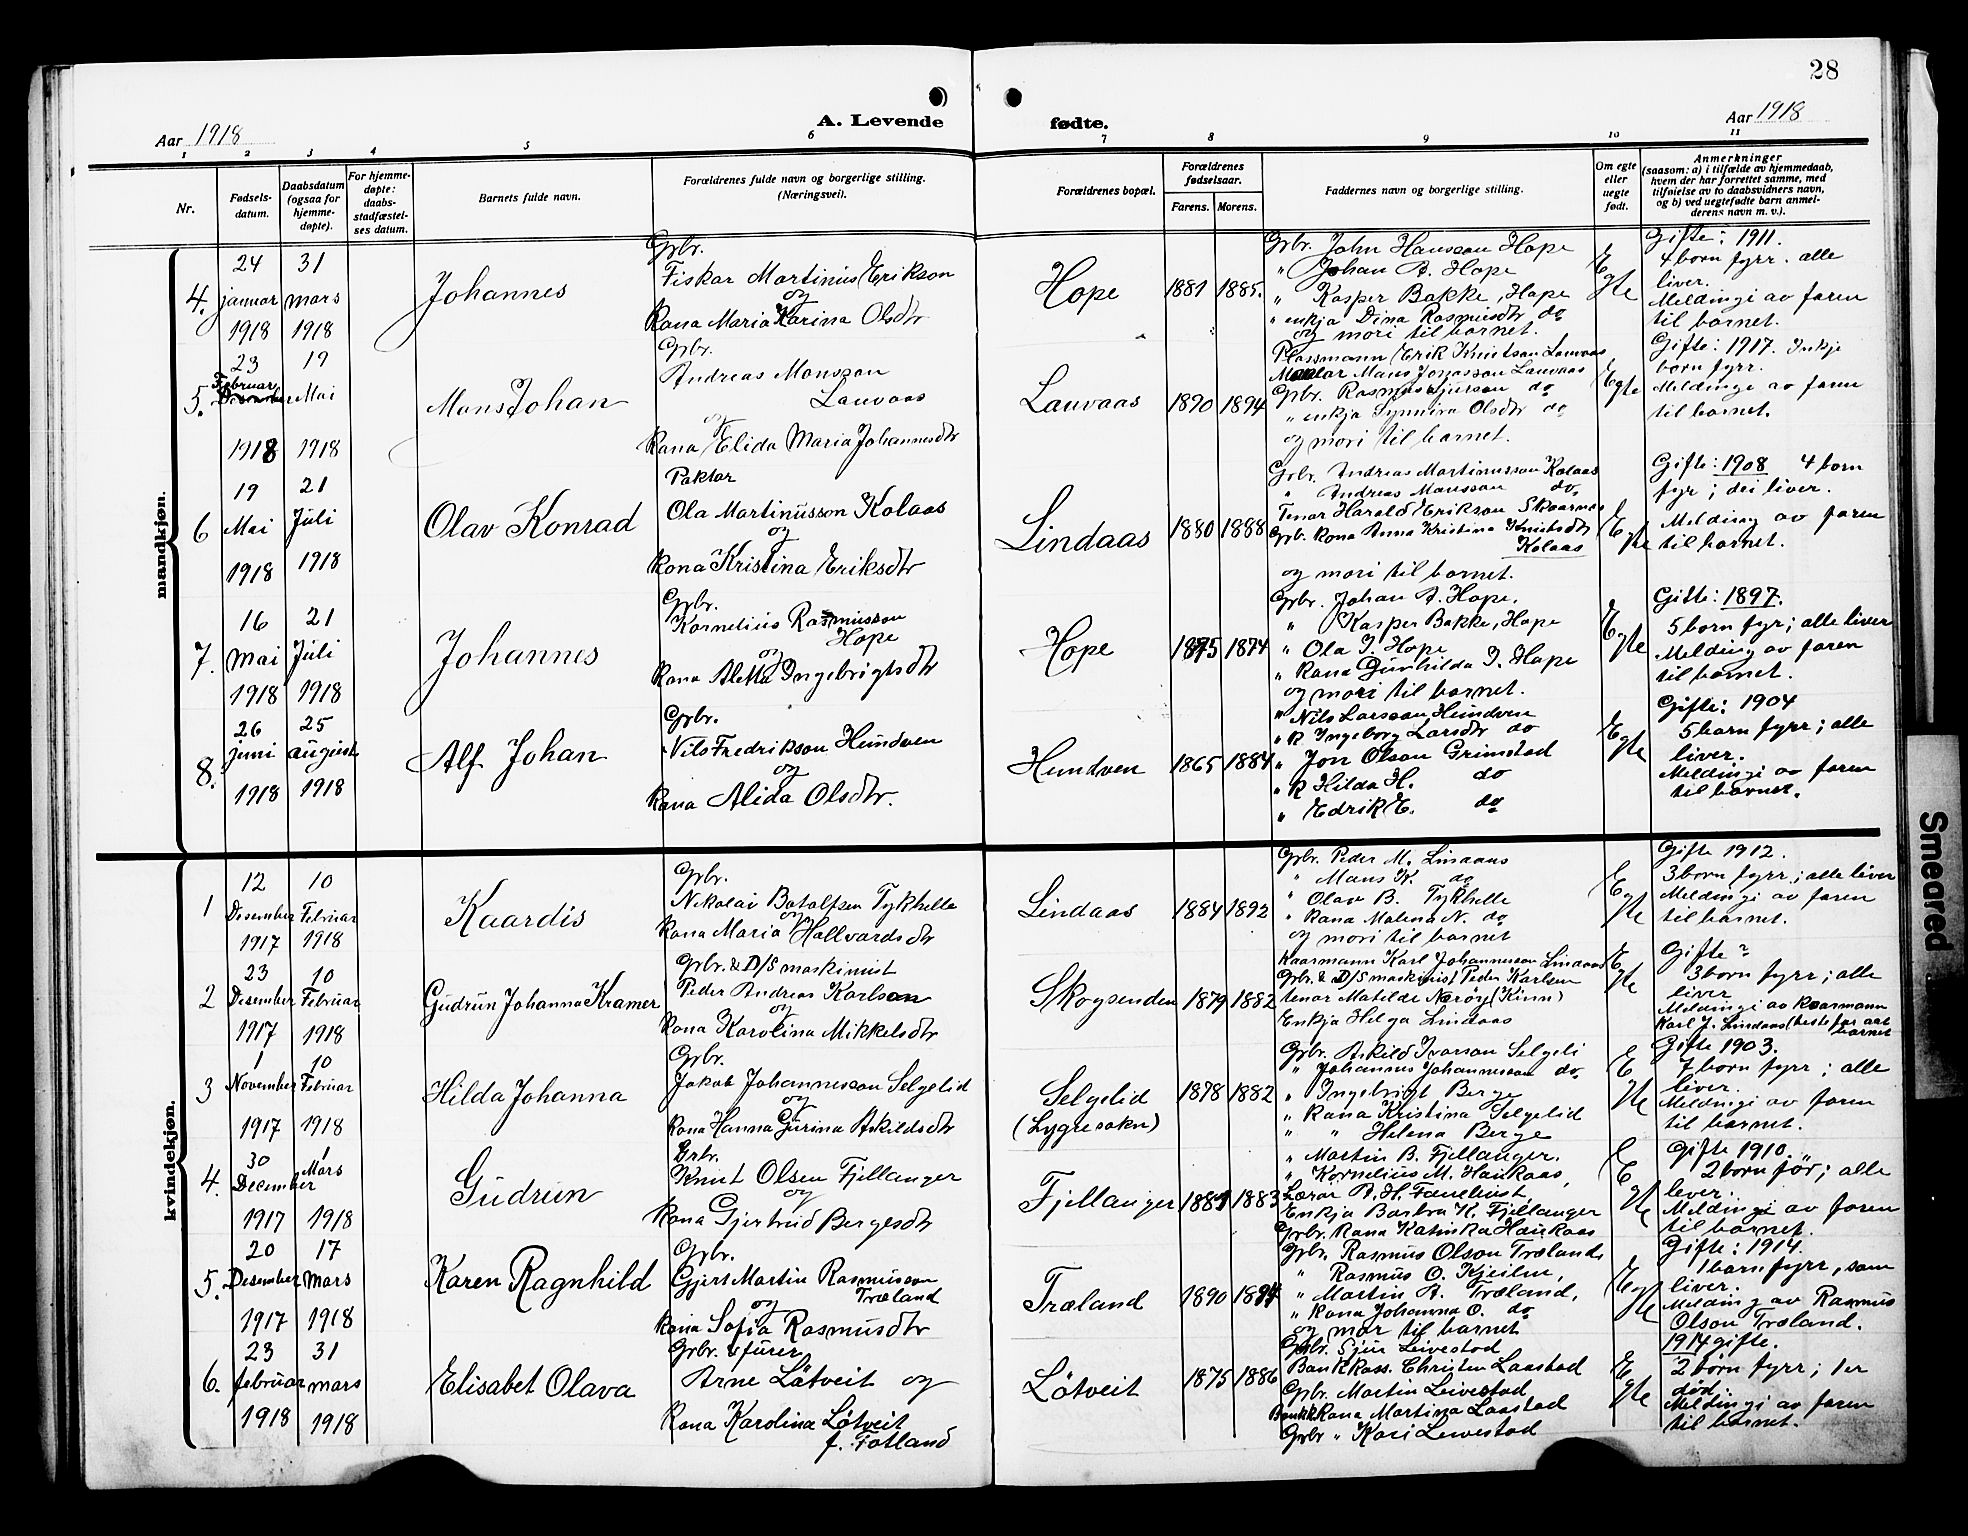 28
Aar 1918
A. Levende fødte.
Aar 1918
1 2 3 4 5 6 7 8 9 10 11
Nr.
Fødsels-
datum.
Daabsdatum
(ogsaa for
hjemme-
døpte).
For hjemme-
døpte:
daabs-
stadfæstel-
ses datum.
Barnets fulde navn.
Forældrenes fulde navn og borgerlige stilling.
(Næringsvei).
Forældrenes bopæl.
Forældrenes
fødselsaar.
Farens. Morens.
Faddernes navn og borgerlige stilling.
Om egte
eller
uegte
født.
Anmerkninger
(saasom: a) i tilfælde av hjemmedaab,
hvem der har forrettet samme, med
tilføielse av to daabsvidners navn,
og b) ved uegtefødte barn anmel-
derens navn m. v.).
mandkjøn.
4.
24
januar
1918
31
mars
1918
Johannes
Grbr.
Fiskar Martinius Erikson
og
Kona Maria Karina Olsdtr
Hope
1881 1885.
Grbr. John Hansson Hope
" Johan A. Hope
" Kasper Bakke, Hope
" enkja Dina Rasmusdtr do
og mori til barnet.
Egte
Gifte: 1911.
4 born fyrr. alle
liver.
Meldingi av faren
til barnet.
5.
23
Februar
1918
19
Mai
1918
Mons Johan
Grbr.
Andreas Monsson
Lauvaas
og
Kona Elida Maria Johannesdtr
Lauvaas
1890 1894
Plassmann Erik Knutson Lauvaas
Maalar Mons Jonasson Lauvaas
Grbr. Rasmus Sjurson do
" enkja Synnira Olsdtr do
og mori til barnet.
Egte
Gifte: 1917. Inkje
born fyrr.
Meldingi av faren
til barnet.
6
19
Mai
1918
21
Juli
1918
Olav Konrad
Paktar
Ola Martinusson Kolaas
og
Kona Kristina Eriksdtr
Lindaas
1880 1888
Grbr. Andreas Martinusson Kolaas
" Andreas Monsson do
Tenar Harald Erikson Skaarnes
Grb. Kona Anna Kristina Knutsdtr
Kolaas
og mori til barnet.
Egte
Gifte: 1908 4 born
fyr; dei liver.
Melding av faren
til barnet.
7.
16
Mai
1918
21
Juli
1918
Johannes
Grbr.
Kornelius Rasmusson
Hope
og
Kona Aletta Ingebrigtsdtr
Hope
1875 1874
Grbr. Johan A. Hope.
" Kasper Bakke, Hope
" Ola J. Hope
" Kona Gunhilda J. Hope
og mori til barnet.
Egte
Gifte: 1897.
5 born fyr; alle liver
Melding av faren
til barnet.
8.
26
juni
1918
25
august
1918
Alf Johan
Grbr.
Nils Fredrikson Hundven
og
Kona Alida Olsdtr.
Hundven
1865 1884
" Nils Larsson Hundven
" K Ingeborg Larsdtr do
" Jon Olson Grimstad
" K Hilda H. do
" Edrik E. do
Egte
Gifte: 1904
5 born fyrr; alle
liver.
Meldingi av faren
til barnet.
kvindekjøn.
1
12
Desember
1917
10
Februar
1918
Kaardis
Grbr.
Nikolai Botolfsen Tykhelle
og
Kona Maria Hallvardsdtr
Lindaas
1884 1892
Grbr. Peder M. Lindaas
" Mons K. do
" Olav B. Tykhelle
" Kona Malena N. do
og mori til barnet
Egte
Gifte 1912.
3 born fyrr; alle liver
Meldingi av faren
til barnet.
2
23
Desember
1917
10
Februar
1918
Gudrun Johanna Kramer
Grbr. & D/S maskinist
Peder Andreas Karlson
og
Kona Karolina Mikkelsdtr
Skogsenden
1879 1882
Kaarmann Karl Johannesson Lindaas
Grbr. & D/S maskinist Peder Karlsen
tenar Matilde Nærøy (Kinn)
Enkja Helga Lindaas
Egte
Gifte ?
3 born fyrr; alle
liver
Meldingi av Kaarmann
Karl J. Lindaas (bestefar aat
barnet
3
1
November
1917
10
Februar
1918
Hilda Johanna
Grbr.
Jakob Johannesson Selgelid
og
Kona Hanna Gurina Askildsdtr
Selgelid
(Lygresokn)
1878 1882
Grbr. Askild Ivarson Selgeli
" Johannes Johannesson do
" Ingebrigt Berge
" Kona Kristina Selgelid
" " Helena Berge
Egte
Gifte 1903.
7 born fyrr; alle
liver.
Meldingi av faren
til barnet.
4.
30
December
1917
1
Mars
1918
Gudrun
Grbr.
Knut Olsen Fjellanger
og
Kona Gjertrud Bergesdtr
Fjellanger
1883
" Martin B. Fjellanger.
" Kornelius M. Haukaas,
Lærar A. H. Fanehust,
Enkja Barbra K. Fjellanger
Grbr. Kona Katinka Haukaas
Egte
Gifte 1910.
2 born før; alle
lever.
Meldingi av faren
til barnet.
5.
20
Desember
1917
17
mars
1918
Karen Ragnhild
Grbr.
Gjert Martin Rasmusson
Træland
og
Kona Sofia Rasmusdtr
Træland
1890 1894
Grbr. Rasmus Olson Træland
" Rasmus O. Kjeilen,
" Martin A. Træland,
" Kona Johanna O. do
og mor til barnet
Egte
Gifte: 1914.
1 barn fyrr, som
liver.
Melding av Rasmus
Olson Træland.
6.
23
februar
1918
31
mars
1918
Elisabet Olava
Grbr. & furer
Arne Løtveit og
Kona Karolina Løtveit
f. Fotland
Løtveit
1875 1886
Grbr. Sjur Leivestad
Bankkass. Christen Laastad
Grbr. Martin Leivestad
Bankk Kona Martina Laastad
Grbr " Kari Leivestad
Egte
1914 gifte.
2 børn fyrr; 1 er
død.
Meldingi av faren
til barnet.
Smeared